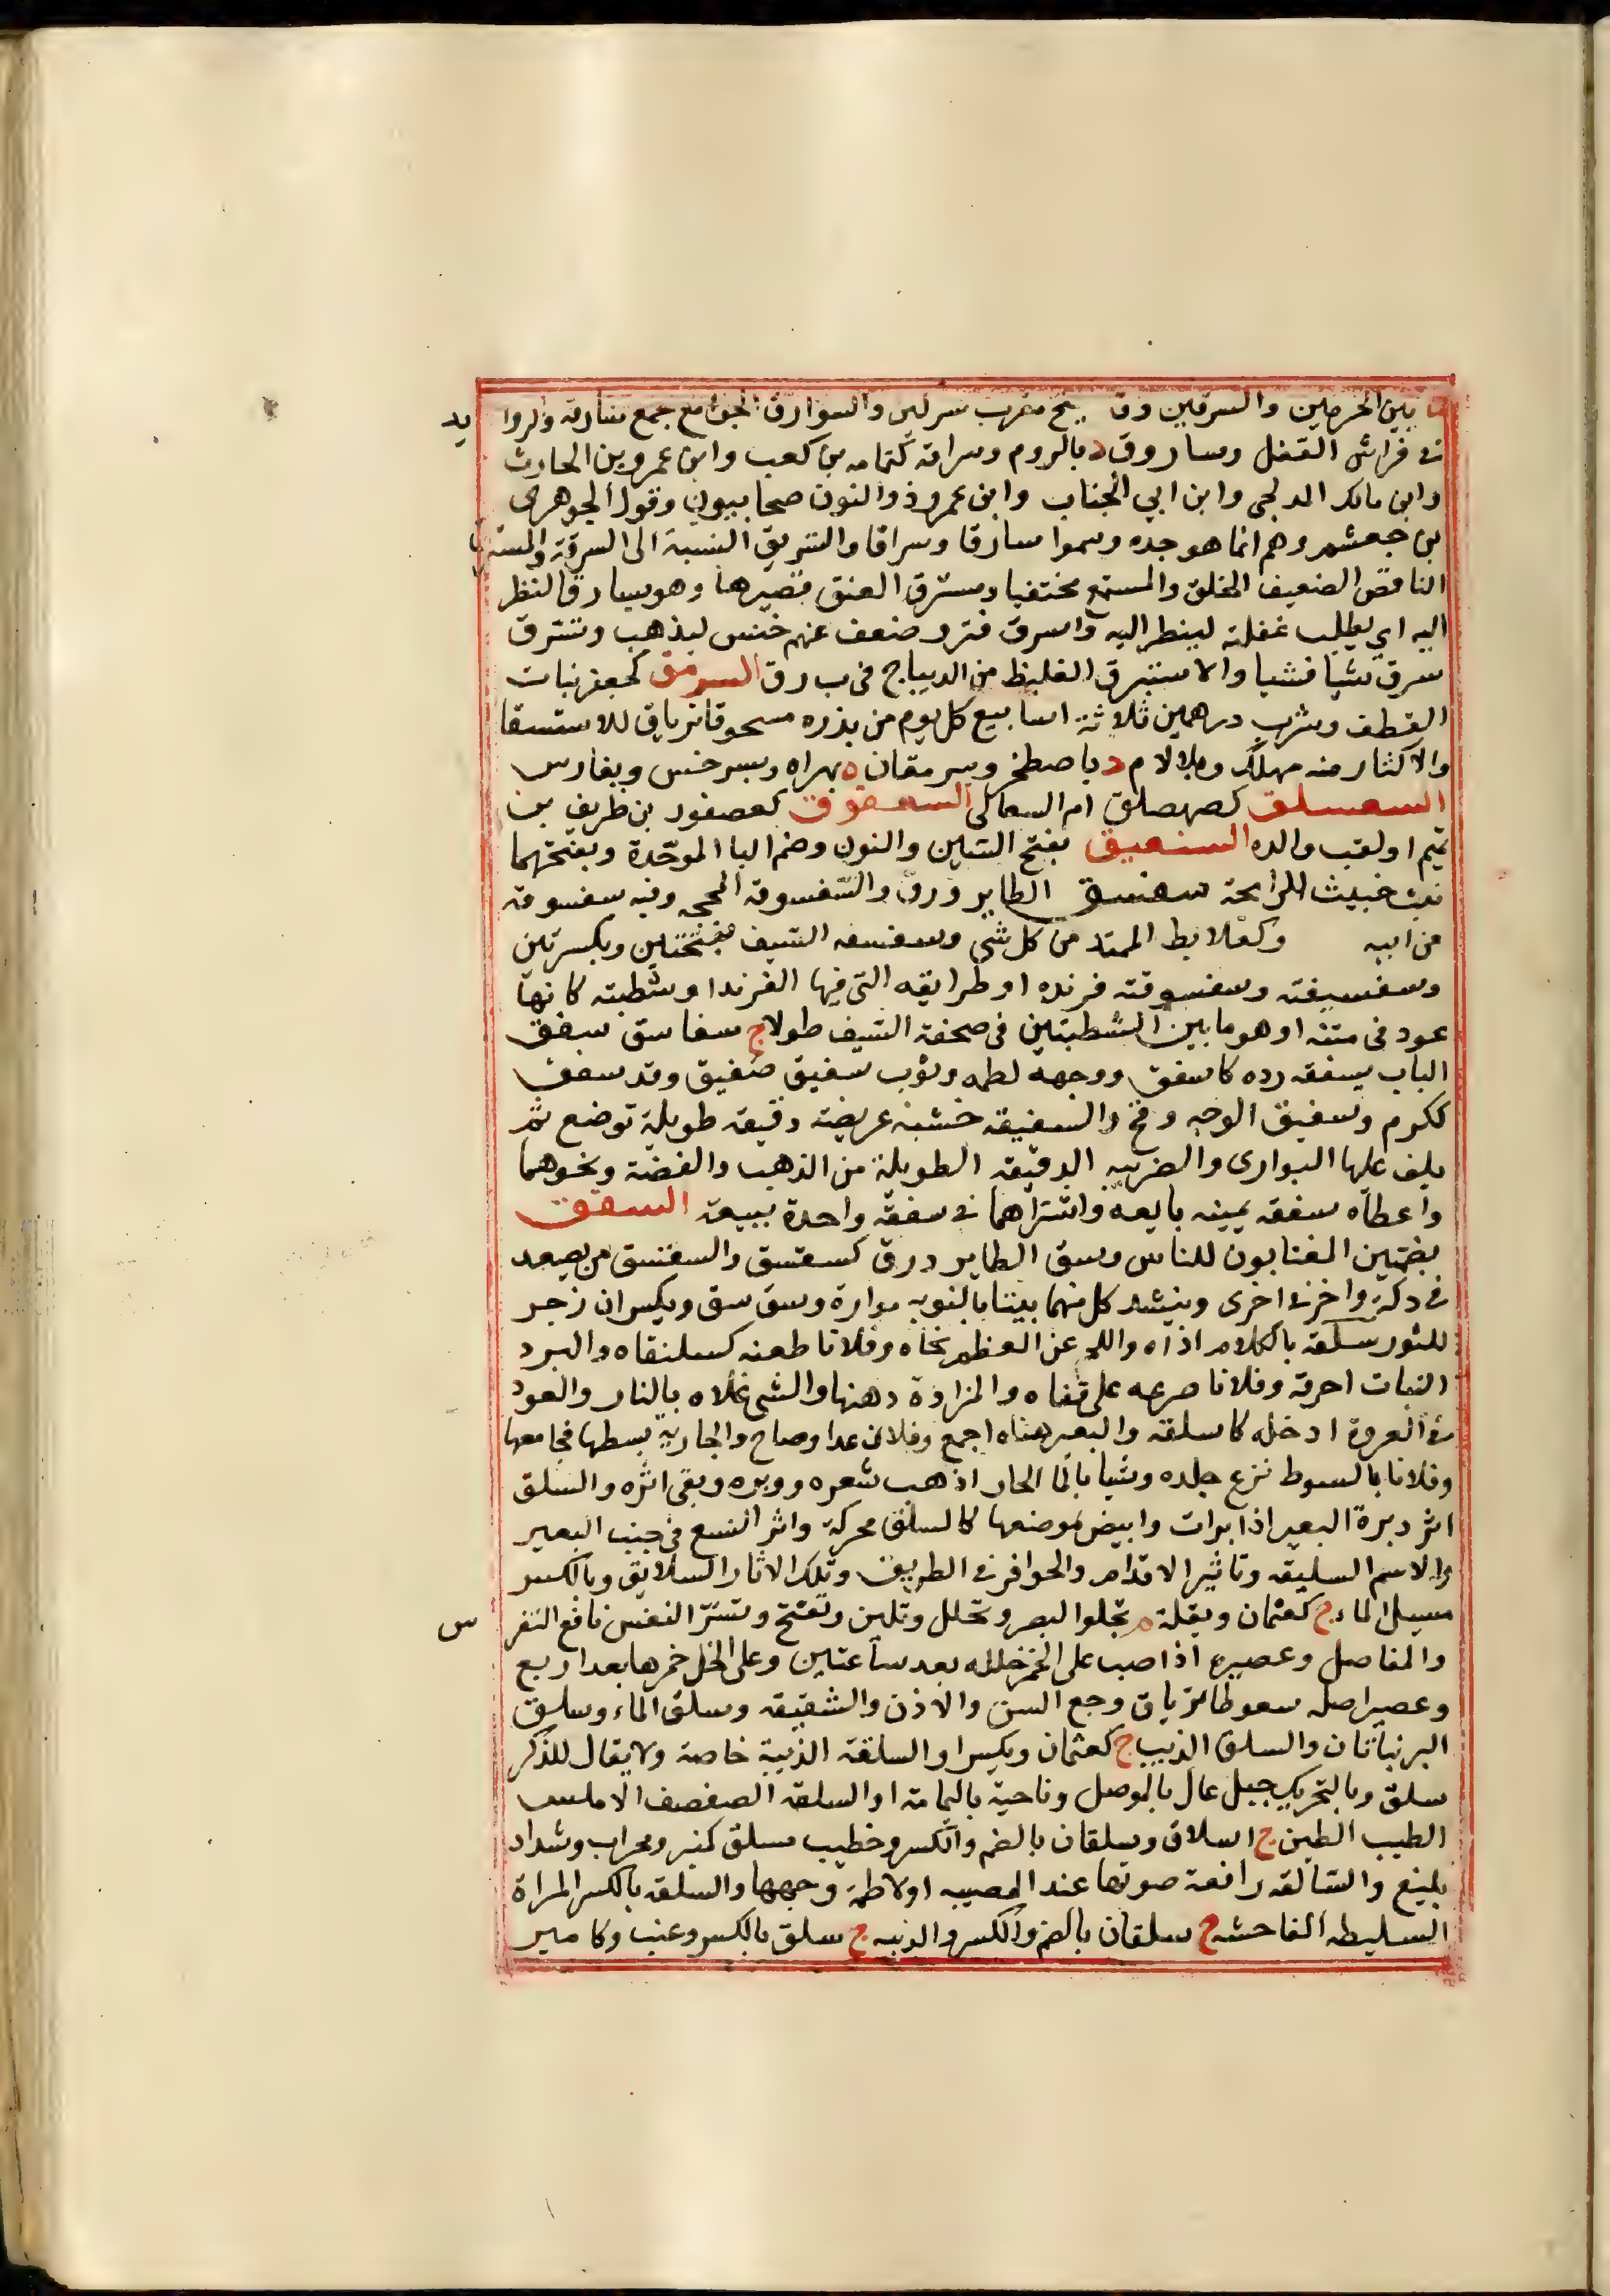 ما بين الحرمين والسرقين وقد يفتح معرب سركين والسوارق الجوامع جمع سارقة والزوايد
في فراش القفل وساروق د بالروم وسراقة كثمامه بن كعب وابن عمرو بن الحارث
وابن مالك المدلجي وابن ابي الحباب وابن عمرو ذو النون صحابيون وقول الجوهرى
بن جعشم وهم انما هو جده وسموا سارقا وسراقا والتسريق النسبة الى السرقة والمسترق
الناقص الضعيف الخلق والمستمع مختفيا ومسترق العنق قصيرها وهو يسارق النظر
اليه اي يطلب غفلته لينظر اليه وانسرق فتر وضعف عنهم خنس ليذهب وتسرق
سرق شيا فشيا والاستبرق الغليظ من الديباج في ب ر ق السرمق كجعفر نبات
القطف وشرب درهمين ثلاثة اسابيع كل يوم من بذره مسحوقا ترياق للاستسقا
والاكثار منه مهلك وبلا لام د باصطخر وسرمقان ه بهراه وبسرخس وبفارس
السعسلق كصهصلق ام السعالى السعفوق كعصفور بن طريف بن
تميم او لقب والده السنعبق بفتح السين والنون وضم البا الموحدة وبفتحهما
نبت خبيث الرايحة سفسق الطاير ذرق والسفسوقة المحجه وفيه سفسوقة
من ابيه وكعلابط الممتد من كل شي وسفسقه السيف بفتحتين وبكسرتين
وسفسيقته وسفسوقته فرنده او طرايقه التي فيها الفرند او شطبته كانها
عود في متنه او هو ما بين الشطبتين في صحفة السيف طولا ج سفاسق سفق
الباب يسفقه رده كاسفق ووجهه لطمه وثوب سفيق صفيق وقد سفق
ككرم وسفيق الوجه وقح والسفيقه خشبة عريضة دقيقه طويلة توضع ثم
يلف عليها البوارى والضريبه الدقيقه الطويلة من الذهب والفضة ونحوهما
واعطاه سفقه يمينه بايعه واشتراهما في سفقة واحدة ببيعة السقق
بضمتين المغتابون للناس وسق الطاير ذرق كسقسق والسقسق من يصعد
في دكة واخر في اخرى وينشد كل منهما بيتا بالنوبه مواره وسق سق ويكسران زجر
للثور سلقه بالكلام اذاه واللحم عن العظم نحاه وفلانا طعنه كسلنقاه والبرد
النبات احرقه وفلانا صرعه على قفاه والمزادة دهنها والشي غلاه بالنار والعود
في العروة ادخله كاسلقه والبعير هناه اجمع وفلان عدا وصاح والجارية بسطها فجامعها
وفلانا بالسوط نزع جلده وشيا بالما الحار اذهب شعره ووبره وبقي اثره والسلق
اثر دبرة البعير اذا برات وابيض موضعها كالسلق محركة واثر النسع في جنب البعير
والاسم السليقه وتاثير الاقدام والحوافر في الطريق وتلك الاثار السلايق وبالكسر
مسيل الماء ج كعثمان وبقلة م تجلوا البصر وتحلل وتلين وتفتح وتسر النفس نافع النقرس
والمفاصل وعصيره اذا صب على الخمر خللها بعد ساعتين وعلى الخل خمرها بعد اربع
وعصير اصله سعوطا ترياق وجع السن والاذن والشقيقه وسلق الماء وسلق
البر نباتان والسلق الذيب ج كعثمان ويكسر او السلقة الذيبة خاصة ولا يقال للذكر
سلق وبالتحريك جبل عال بالموصل وناحية باليمامة او السلقه الصفصف الاملس
الطيب الطين ج اسلاق وسلقان بالضم والكسر وخطيب مسلق كمنبر ومحراب وشداد
بليغ والسالقه رافعة صوتها عند المصيبه او لاطمة وجهها والسلقه بالكسر المراة
السليطه الفاحشه ج سلقان بالضم والكسر والذيبه ج سلق بالكسر وعنب وكامير